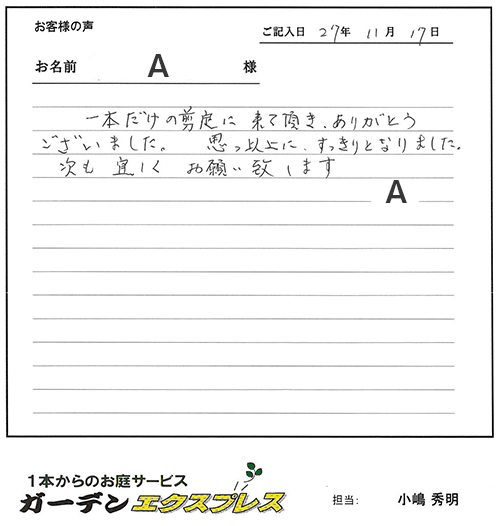 お客様の声
ご記入日 27年 11月 17日
お名前 A 様
一本だけの剪定に 来て頂き、ありがとう
ございました。 思っ以上に、すっきりとなりました。
次も 宜しく お願い致します
A
1本からのお庭サービス
ガーデンエクスプレス
担当: 小嶋 秀明